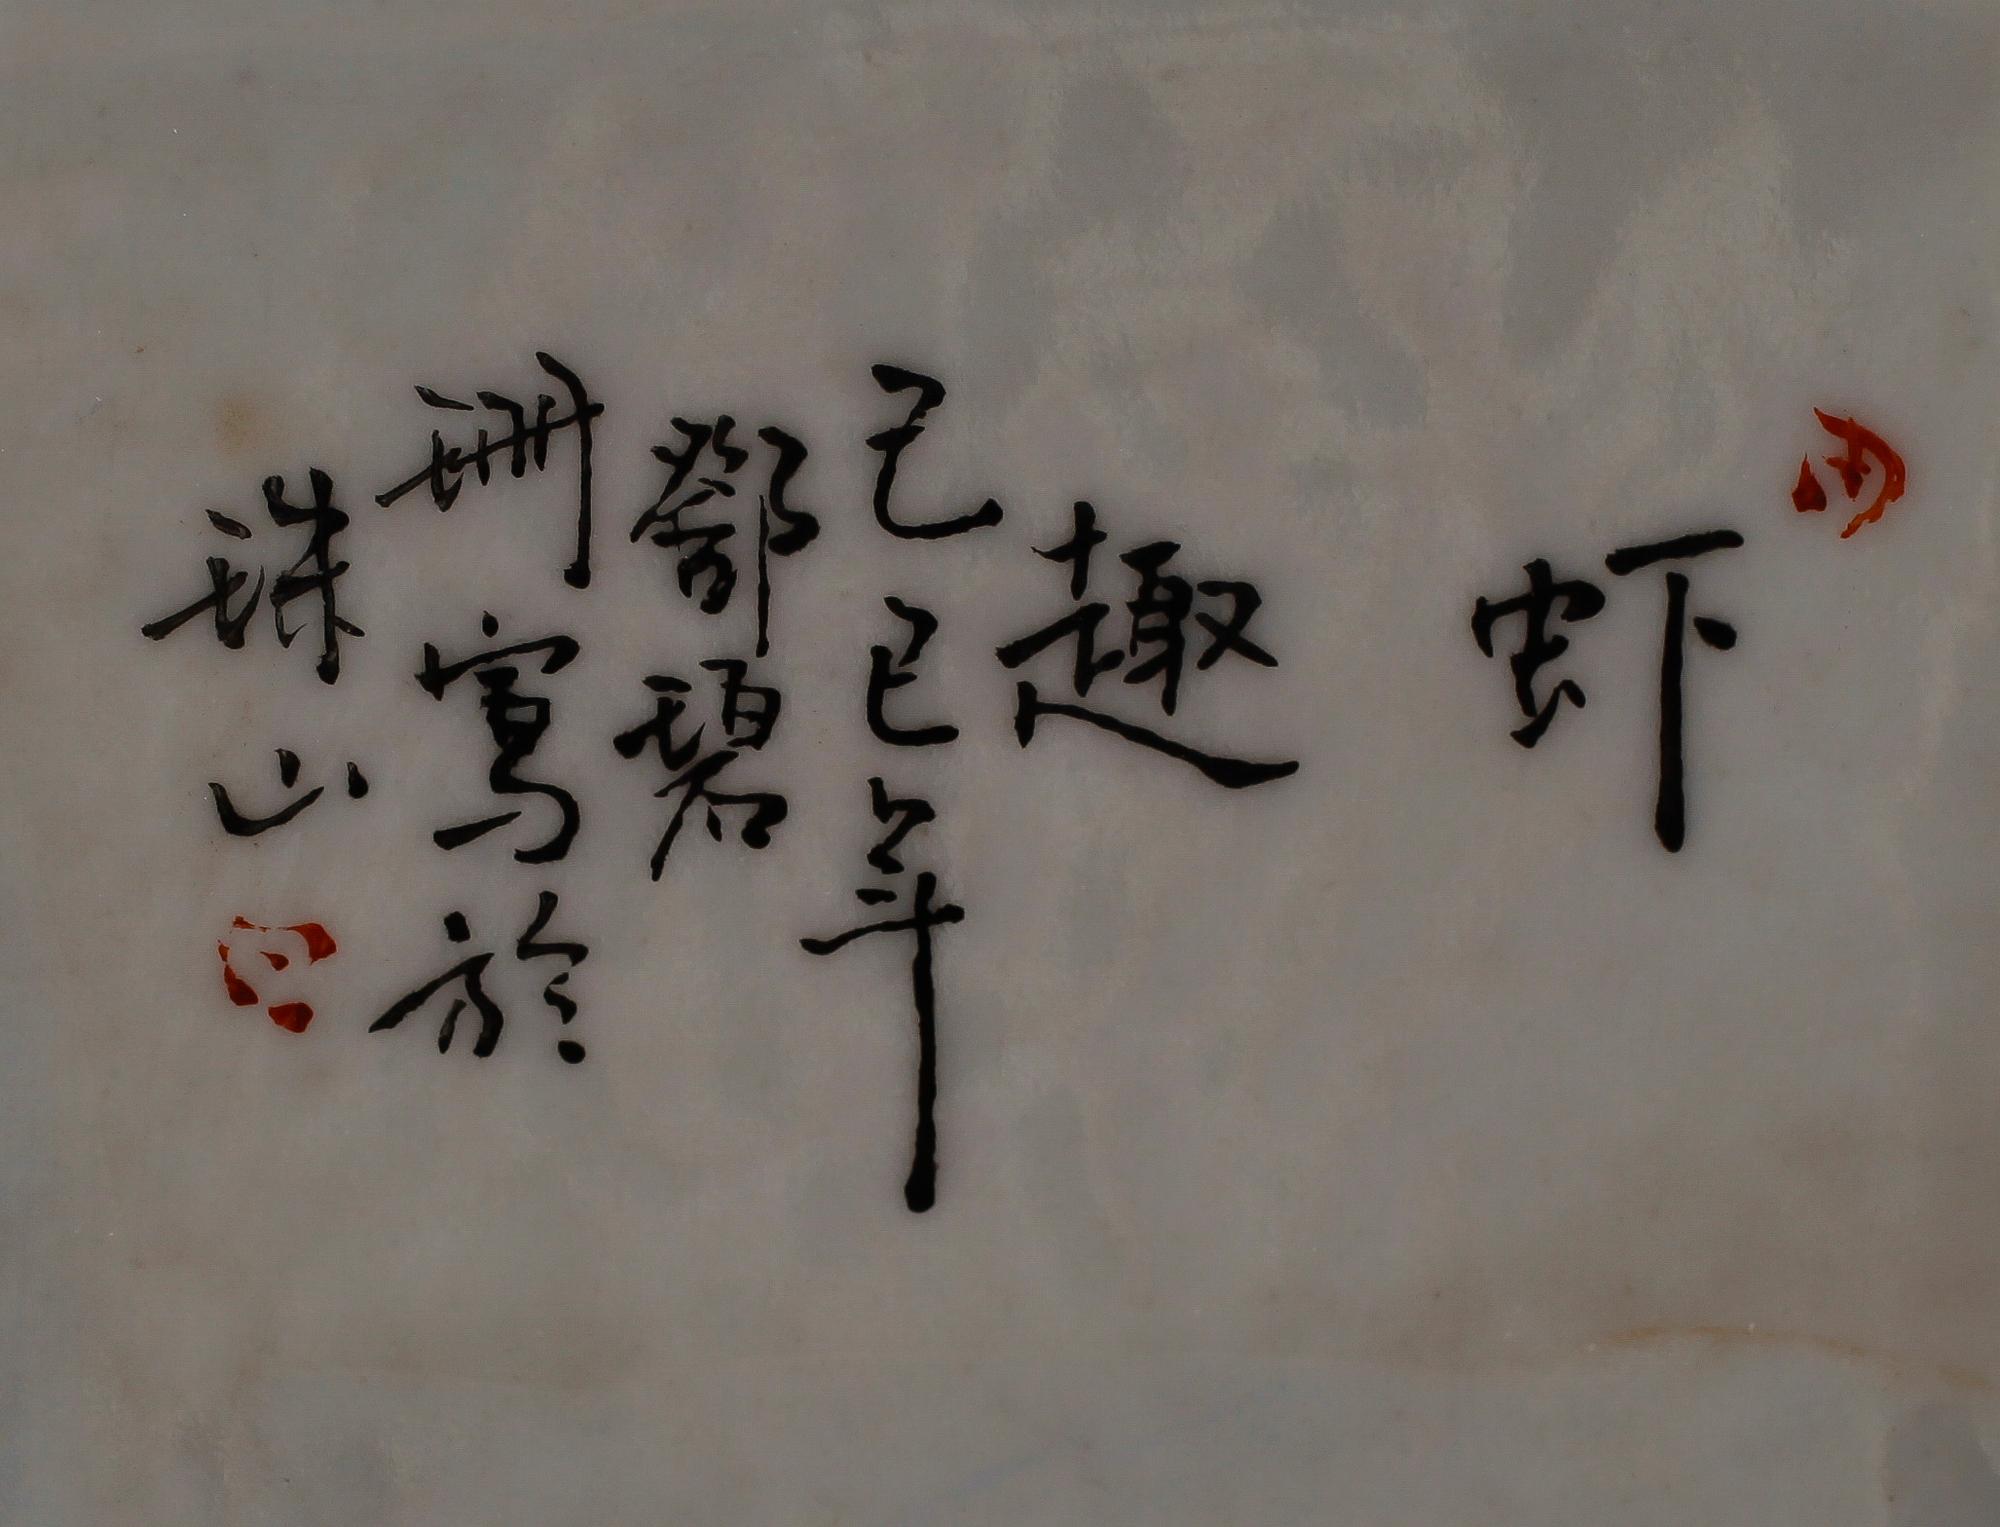 虾趣
己巳年
鄒碧
珊寫於
珠山